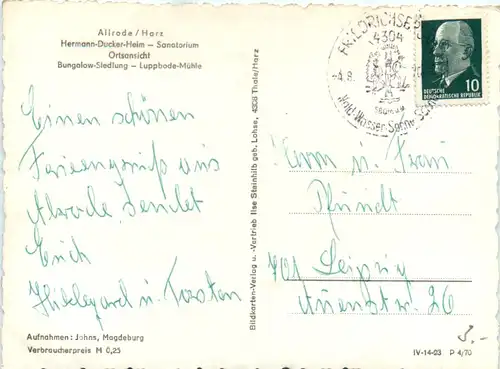 Allrode / Harz
Hermann-Ducker-Heim — Sanatorium
Ortsansicht
Bungalow-Siedlung — Luppbode-Mühle
Einen schönen
Feriengruß aus
Alrode sendet
Euch
Hildegard u. Torsten
Aufnahmen: Johns, Magdeburg
Verbraucherpreis M 0,25
Bildkarten-Verlag u. -Vertrieb Ilse Steinhilb geb. Lohse, 4308 Thale/Harz
4304
Wald Wasser Sonne
DEUTSCHE
DEMOKRATISCHE REPUBLIK
10
Herrn u. Frau
Pfundt
701 Leipzig
Auenstr. 26
IV-14-03 P 4/70